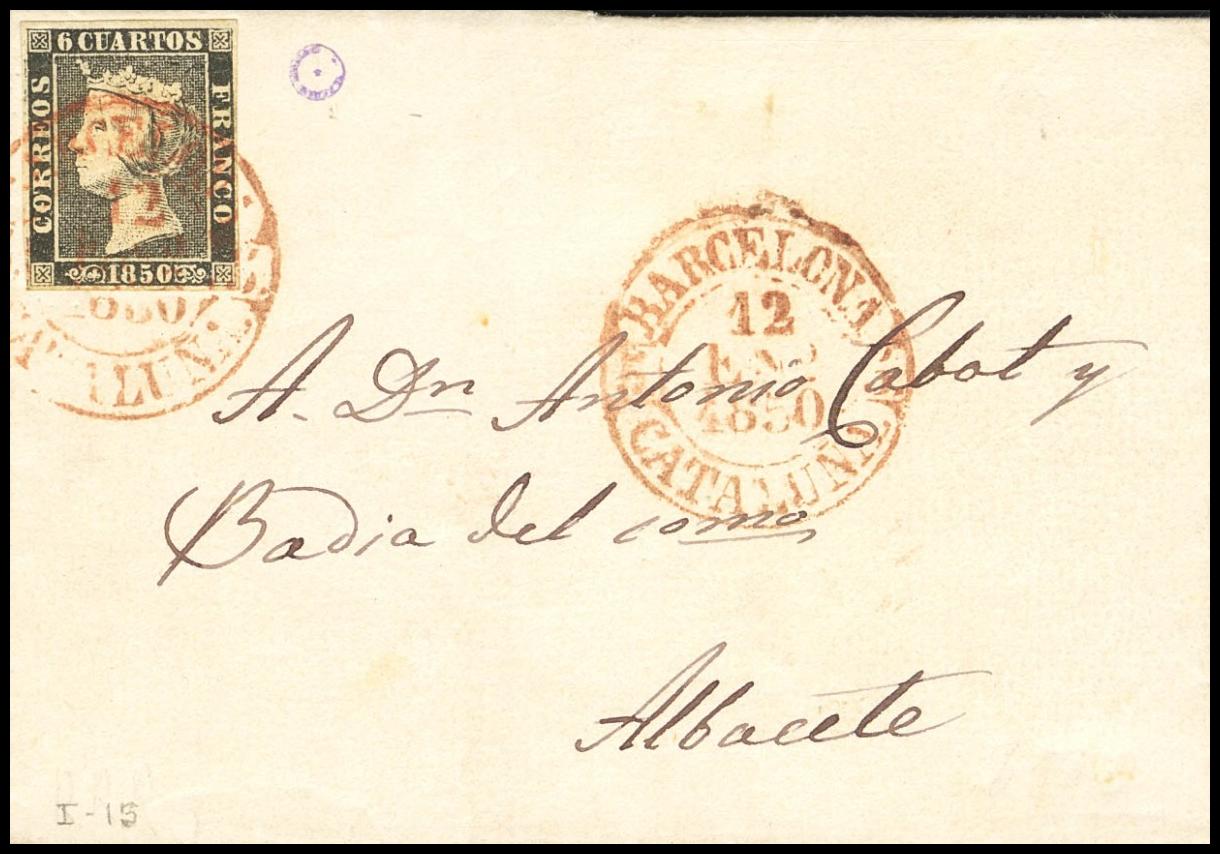 6 CUARTOS
CORREOS
FRANCO
1850
1850
BARCELONA
12
ENº
1850
CATALUÑA.
A. Dn Antonio Cabot y
Badia del como
Albacete
I-15